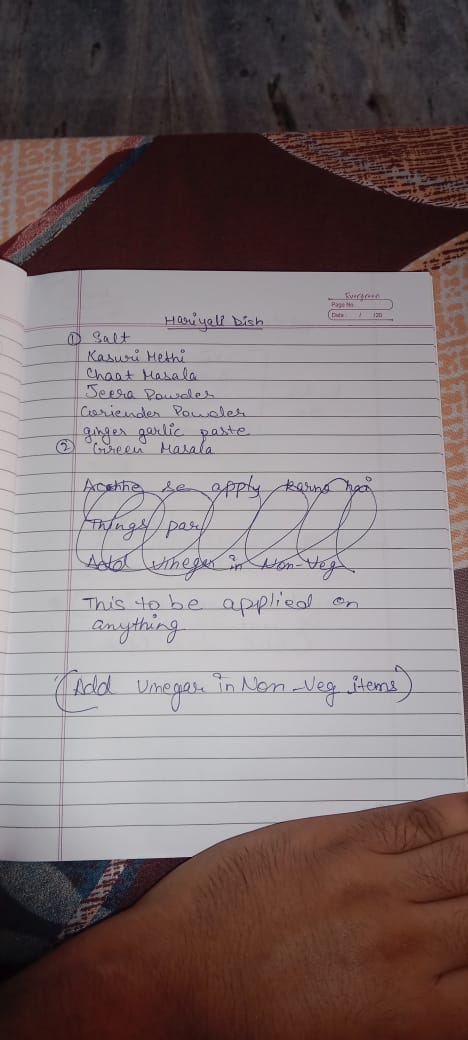 Evergreen
Page No.
Date: / /20
Hariyali Dish
① Salt
Kasuri Methi
Chaat Masala
Jeera Powder
Coriender Powder
ginger garlic paste
② Green Masala
Acchhe se apply karna hai
Things par
Add Vinegar in Non-Veg
This to be applied on
anything
(Add Vinegar in Non-Veg items)